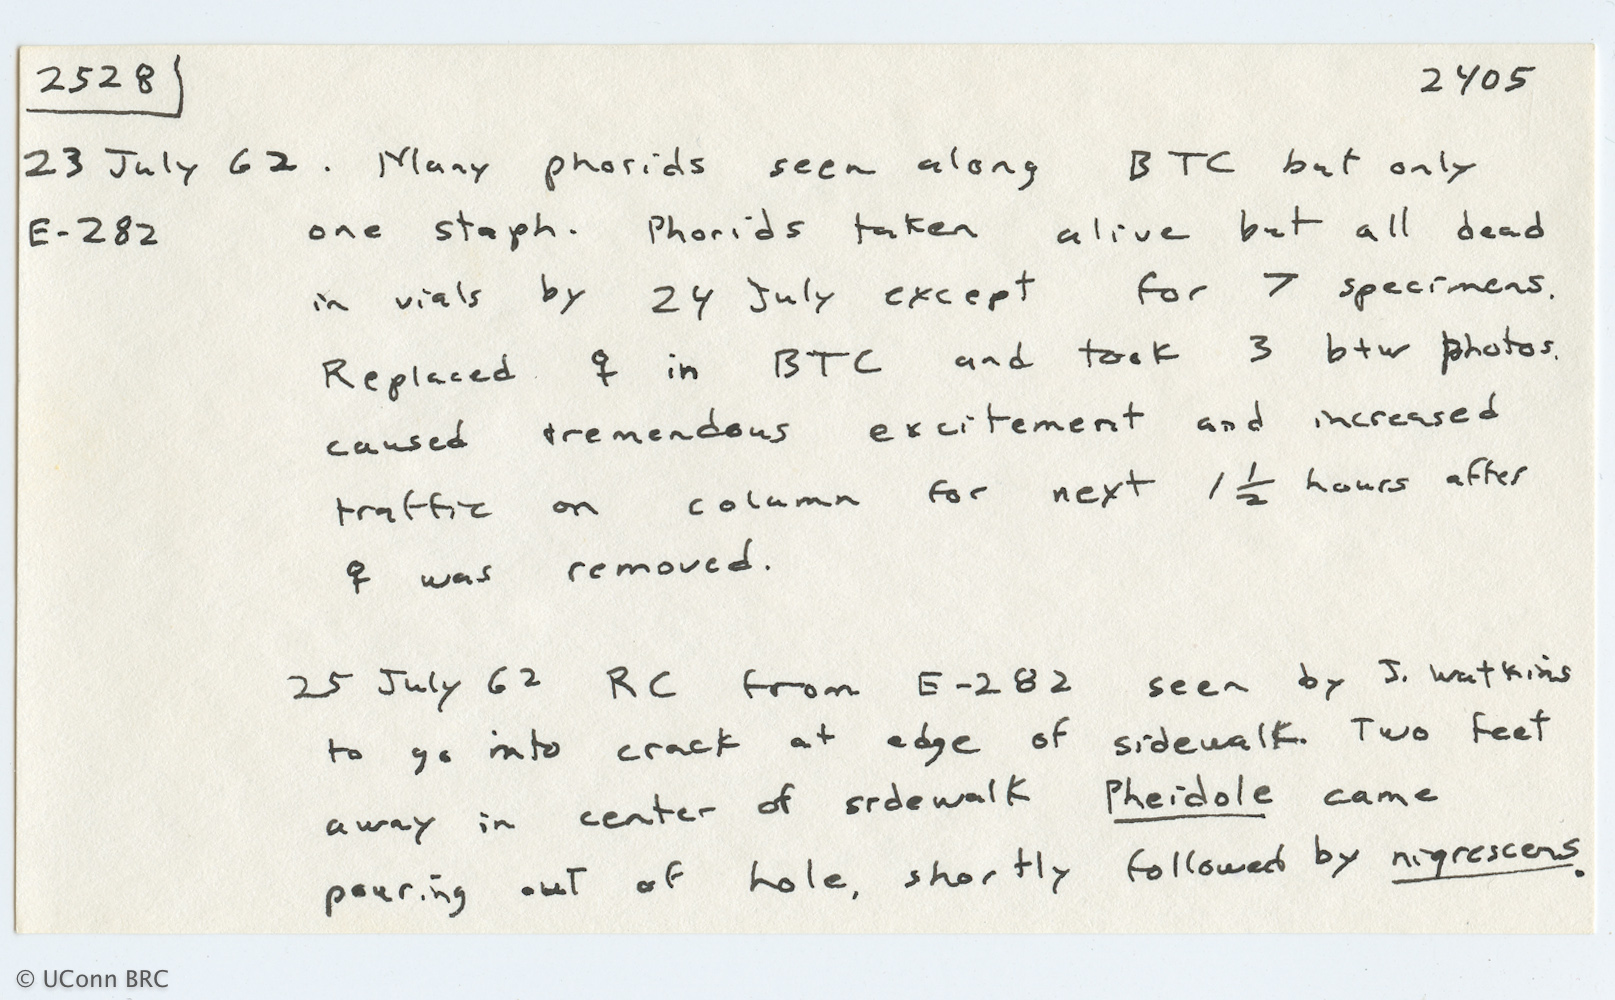 2528 2405
23 July 62. Many phorids seen along BTC but only
E-282 one staph. Phorids taken alive but all dead
in vials by 24 July except for 7 specimens.
Replaced ♀ in BTC and took 3 b+w photos.
caused tremendous excitement and increased
traffic on column for next 1 1/2 hours after
♀ was removed.
25 July 62 RC from E-282 seen by J. Watkins
to go into crack at edge of sidewalk. Two feet
away in center of sidewalk Pheidole came
pouring out of hole, shortly followed by nigrescens.
© UConn BRC